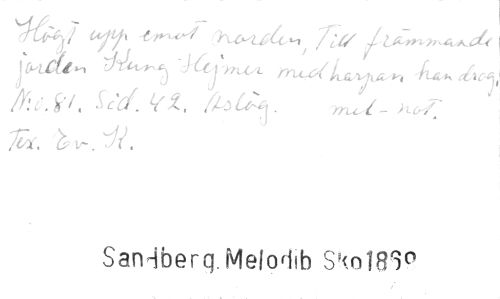 Högt upp emot norden, Till främmande
jorden Kung Hejmer med harpan han drog.
N:o. 81. Sid. 42. Aslög. mel-not.
Tex. Ev. K.
Sandberg. Melodib Sko1869